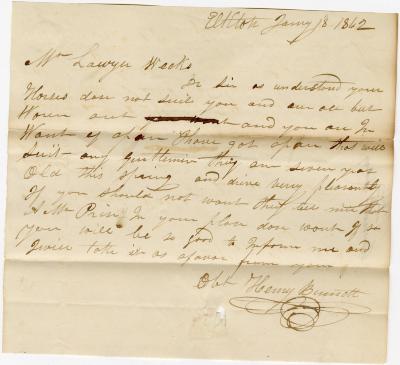 Elkton Jany 18 1862
Mr Lawyer Weeks
Dr sir as understand your
Horses don not suit you and are all but
Woren out and you are In
Want of a pan I have got a pan that will
Suit any gentlemen they are seven year
Old this spring and drive very plesently
If you should not want they tell me that
A Mr Pris In your place dos want If so
you will be so good to Inform me and
I will take it as a favor from you
Obt Henry Burnett